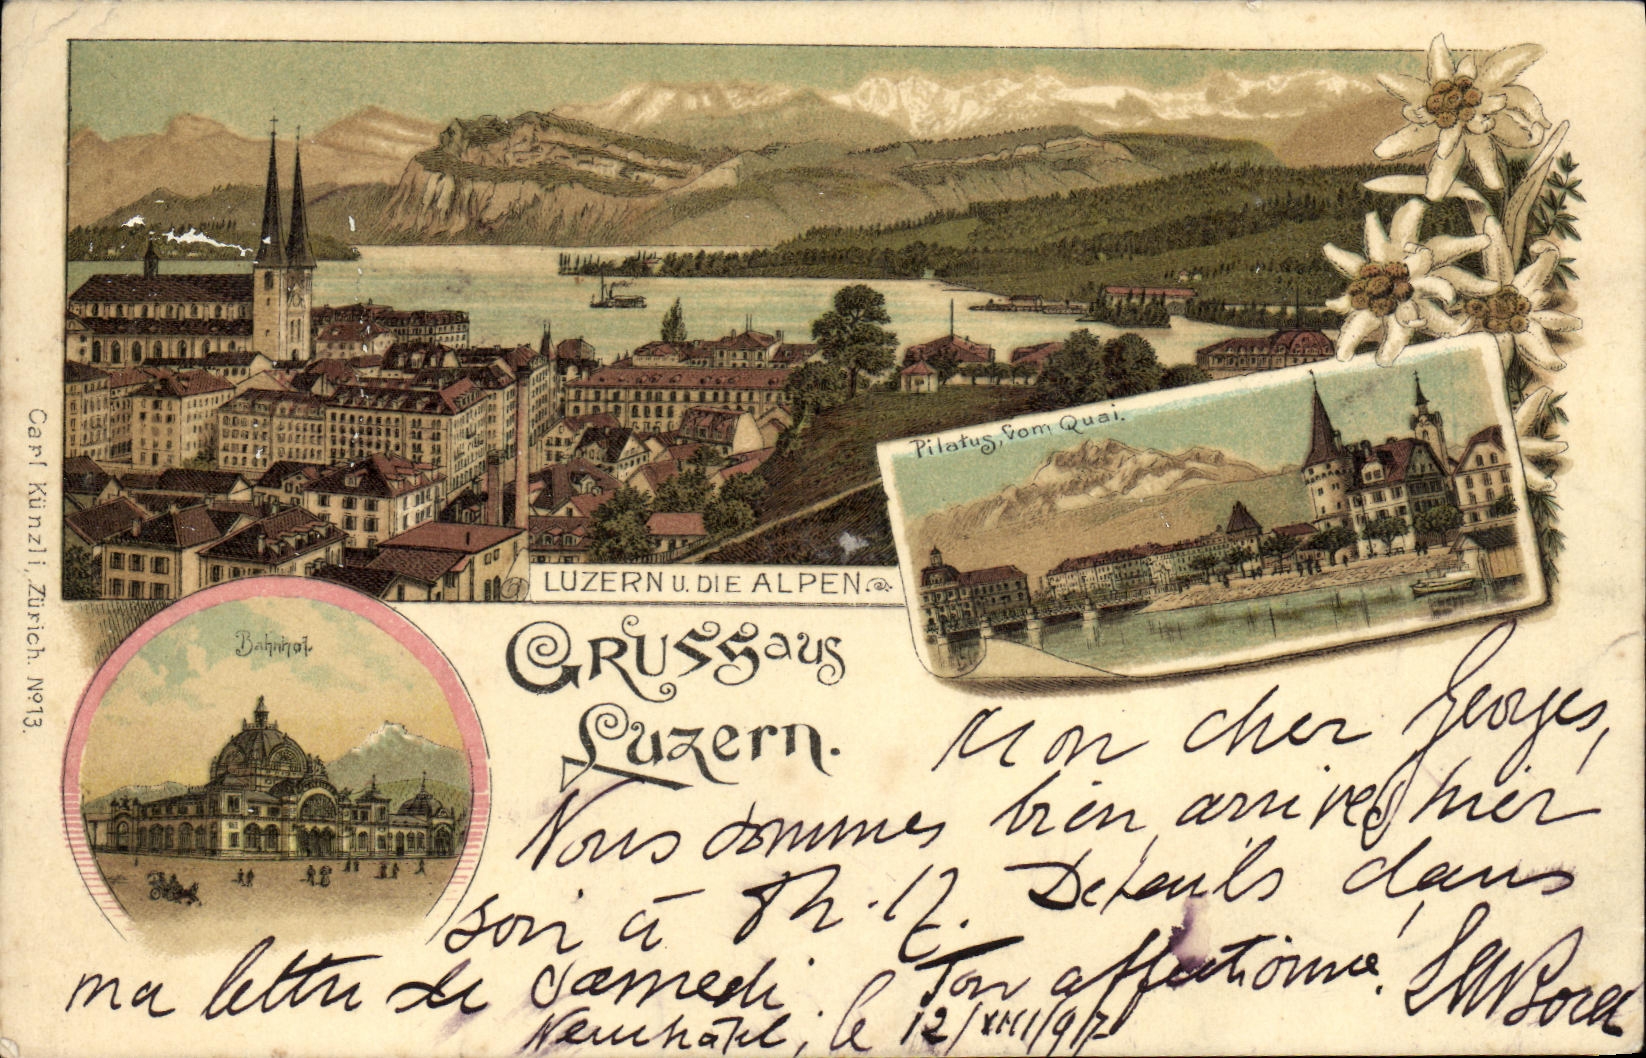 LUZERN U. DIE ALPEN.
Pilatus, Vom Quai.
Bahnhof.
GRUSS aus
Luzern.
Carl Künzli, Zürich. Nº 13.
Mon cher Georges,
Nous sommes bien arrivés hier
soir à Détails dans
ma lettre de samedi Ton affectionné.
Neuchâtel, le 12/ /97